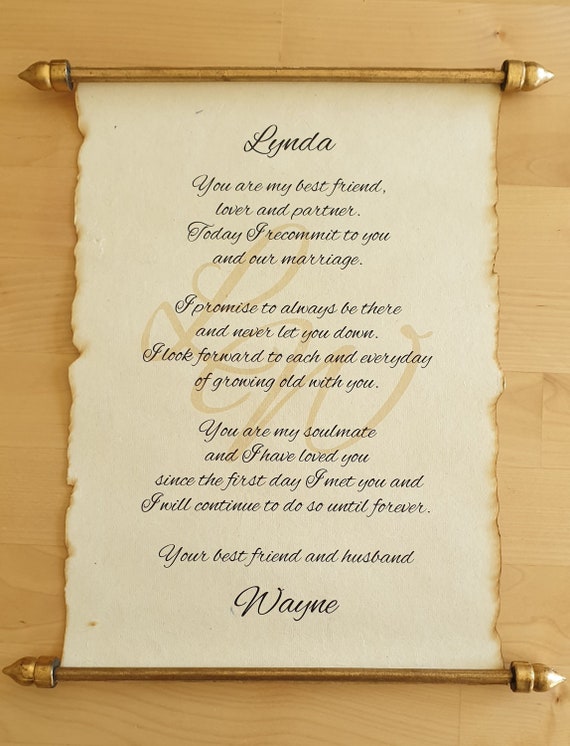 Lynda
You are my best friend,
lover and partner.
Today I recommit to you
and our marriage.
I promise to always be there
and never let you down.
I look forward to each and everyday
of growing old with you.
You are my soulmate
and I have loved you
since the first day I met you and
I will continue to do so until forever.
Your best friend and husband
Wayne
LW